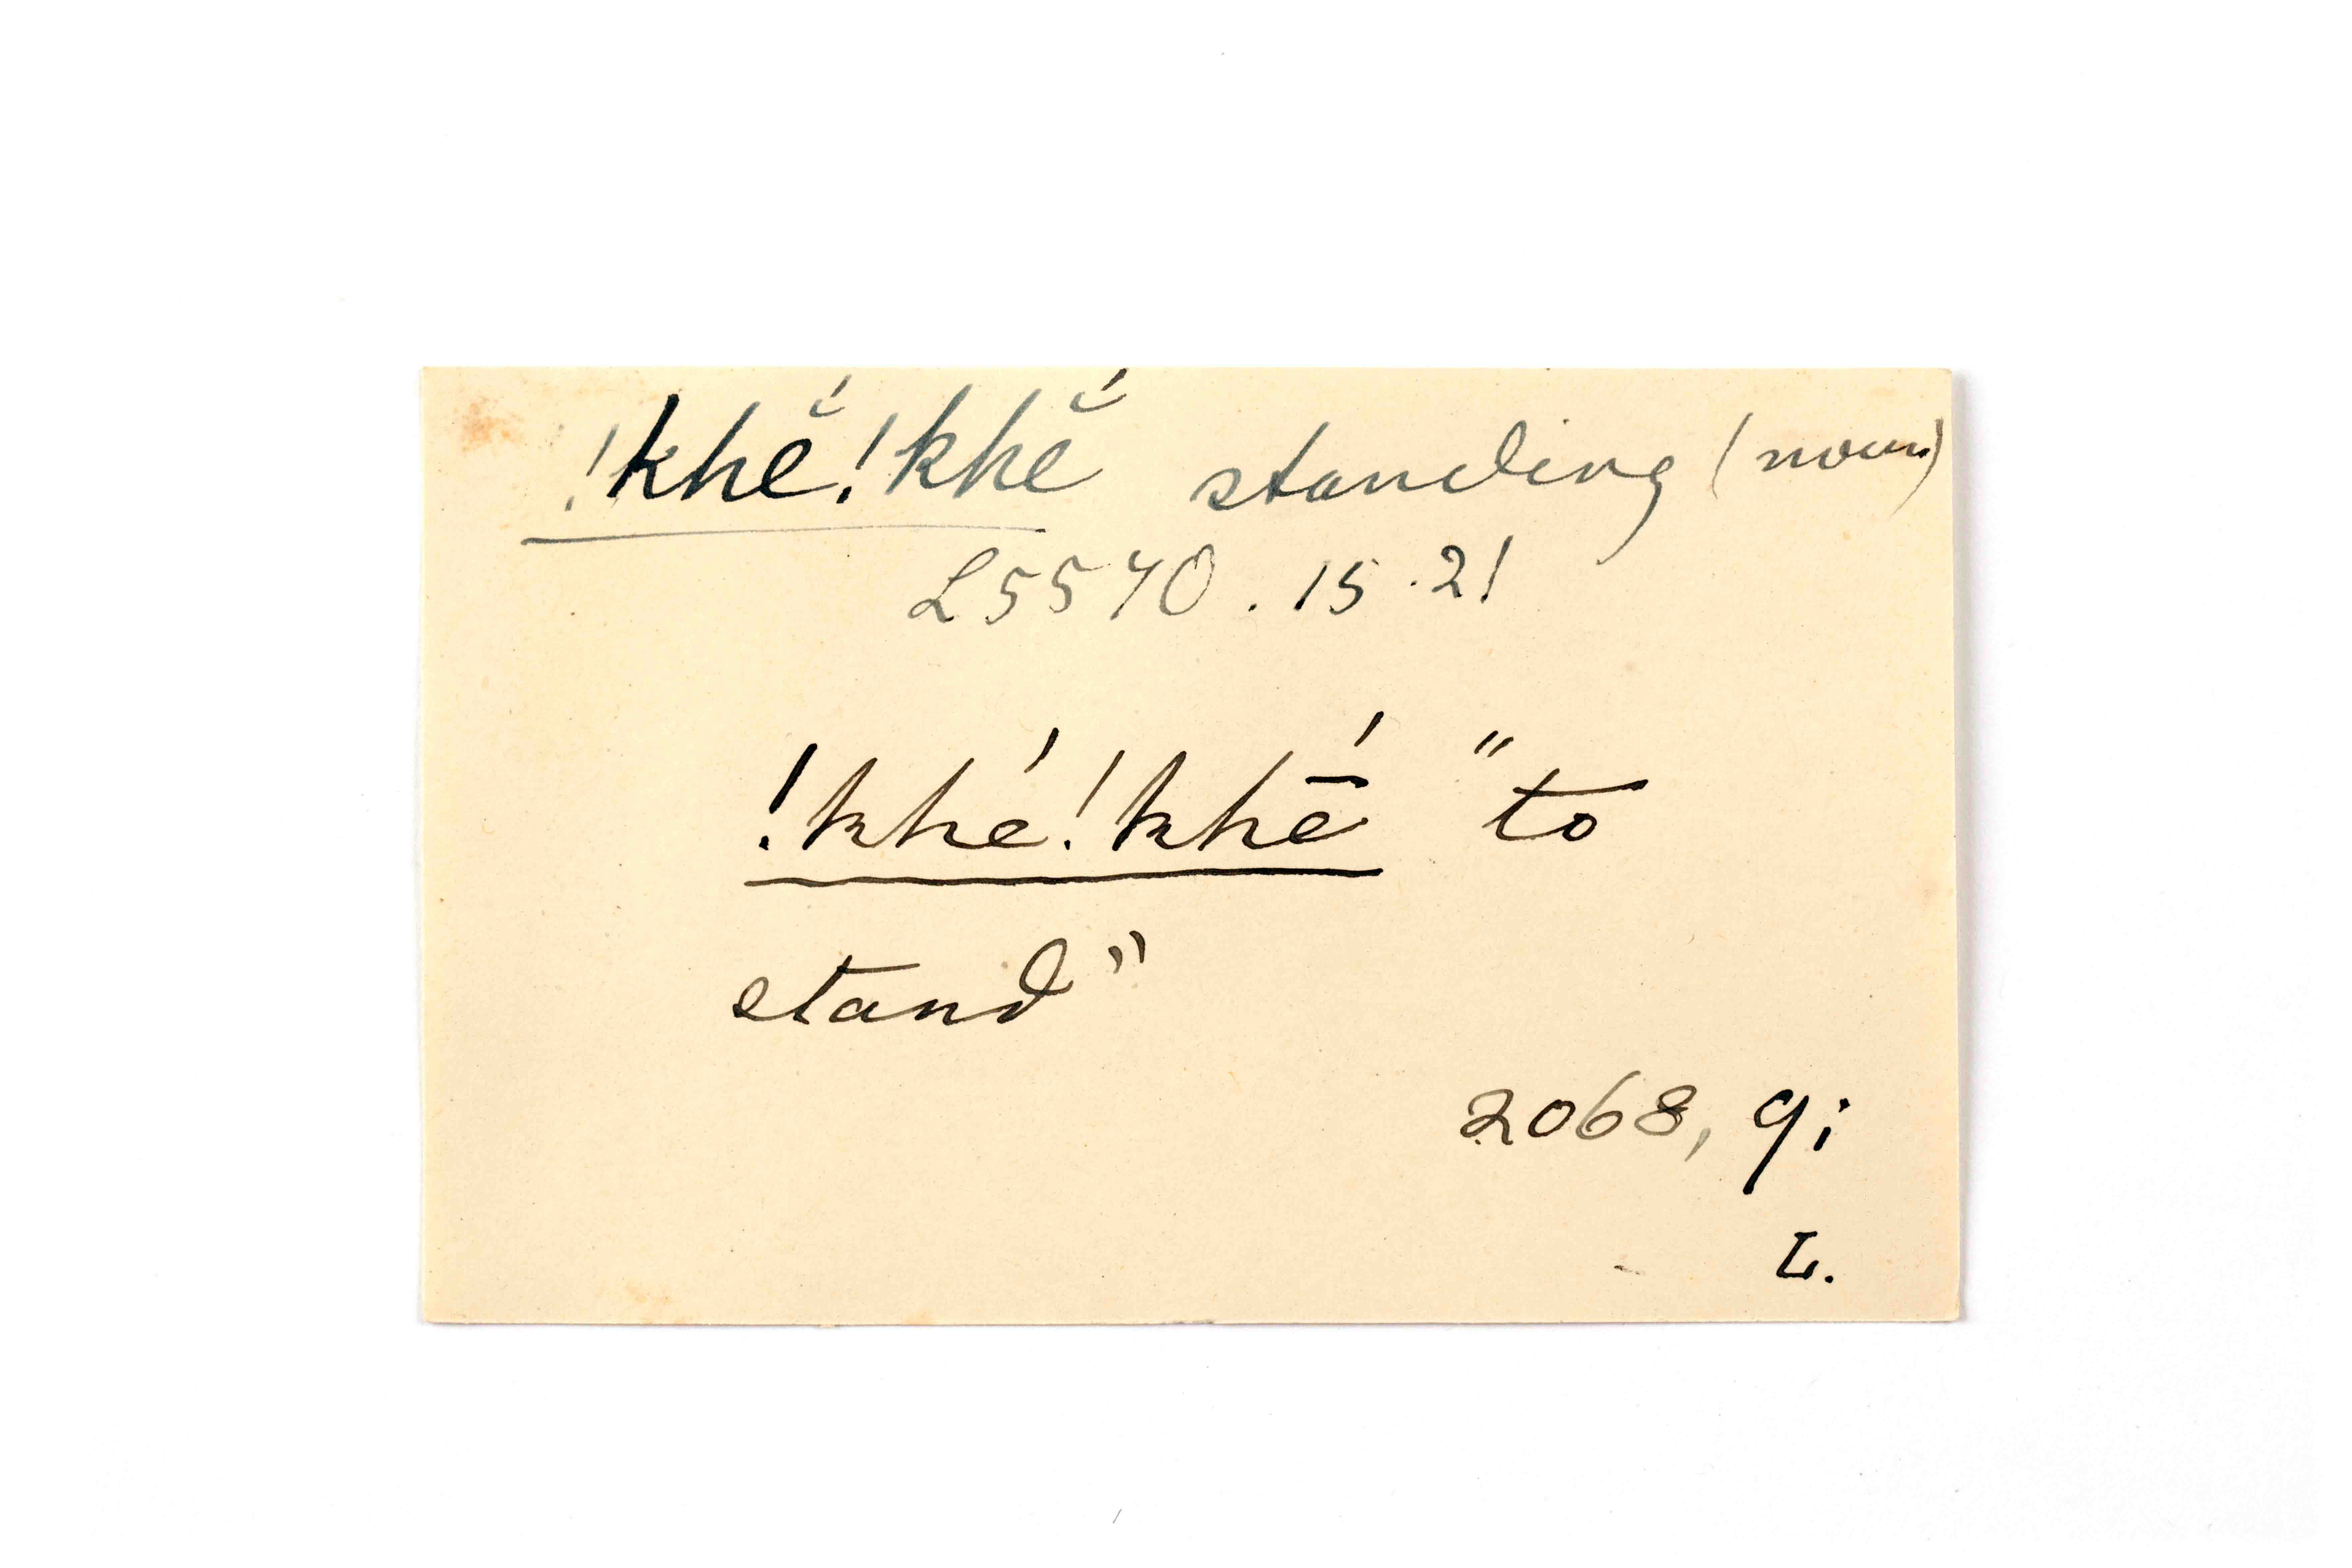 !khĕ́!khĕ́ standing (noun)
L5570.15.21
!khé!khḗ "to
stand"
2068, 9;
L.